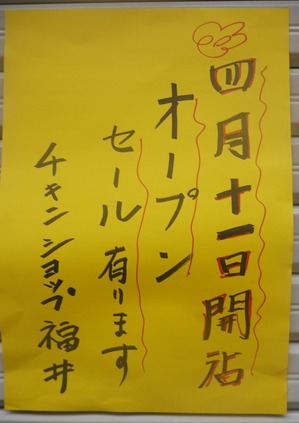 四月十一日開店
オープン
セール有ります
チキンショップ福井